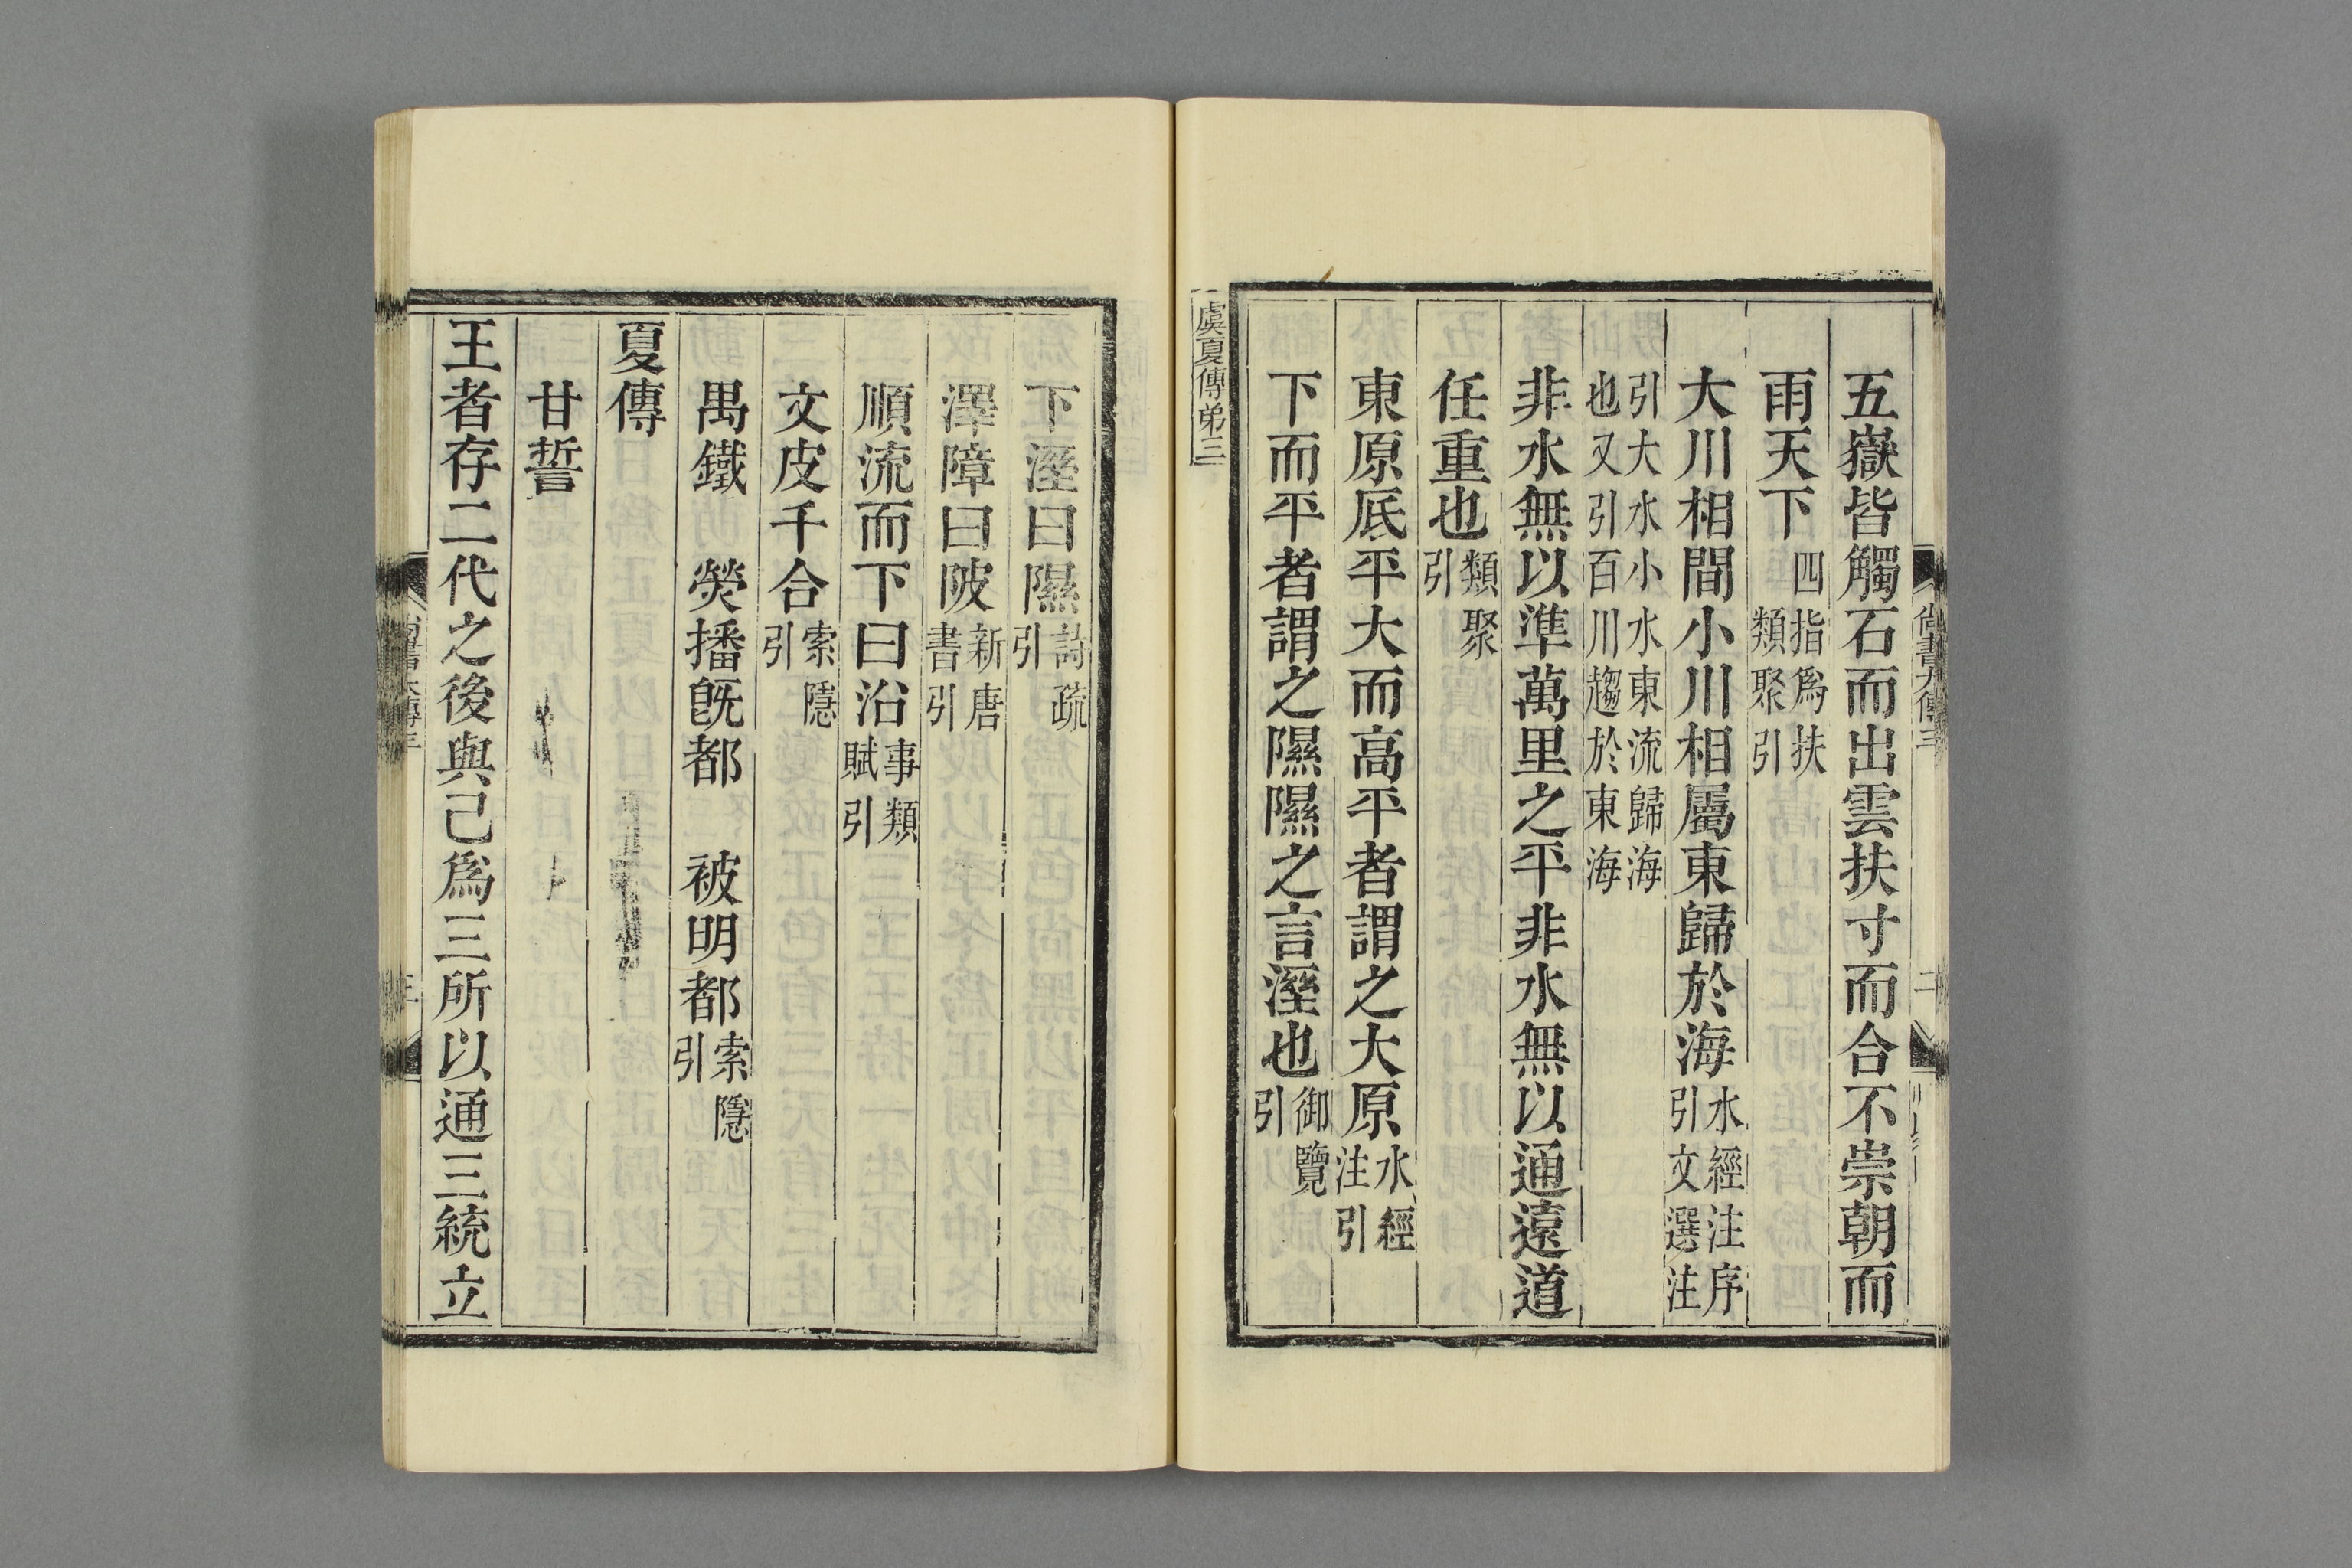 五嶽皆觸石而出雲扶寸而合不崇朝而
雨天下四指爲扶類聚引
大川相間小川相屬東歸於海水經注序引文選注
引大水小水東流歸海也又引百川趨於東海
非水無以準萬里之平非水無以通遠道
任重也類聚引
東原底平大而高平者謂之大原水經注引
下而平者謂之隰隰之言溼也御覽引
虞夏傳弟三
下溼曰隰詩疏引
澤障曰陂新唐書引
順流而下曰沿事類賦引
文皮千合索隱引
禺鐵　熒播旣都　被明都索隱引
夏傳
甘誓
王者存二代之後與己爲三所以通三統立